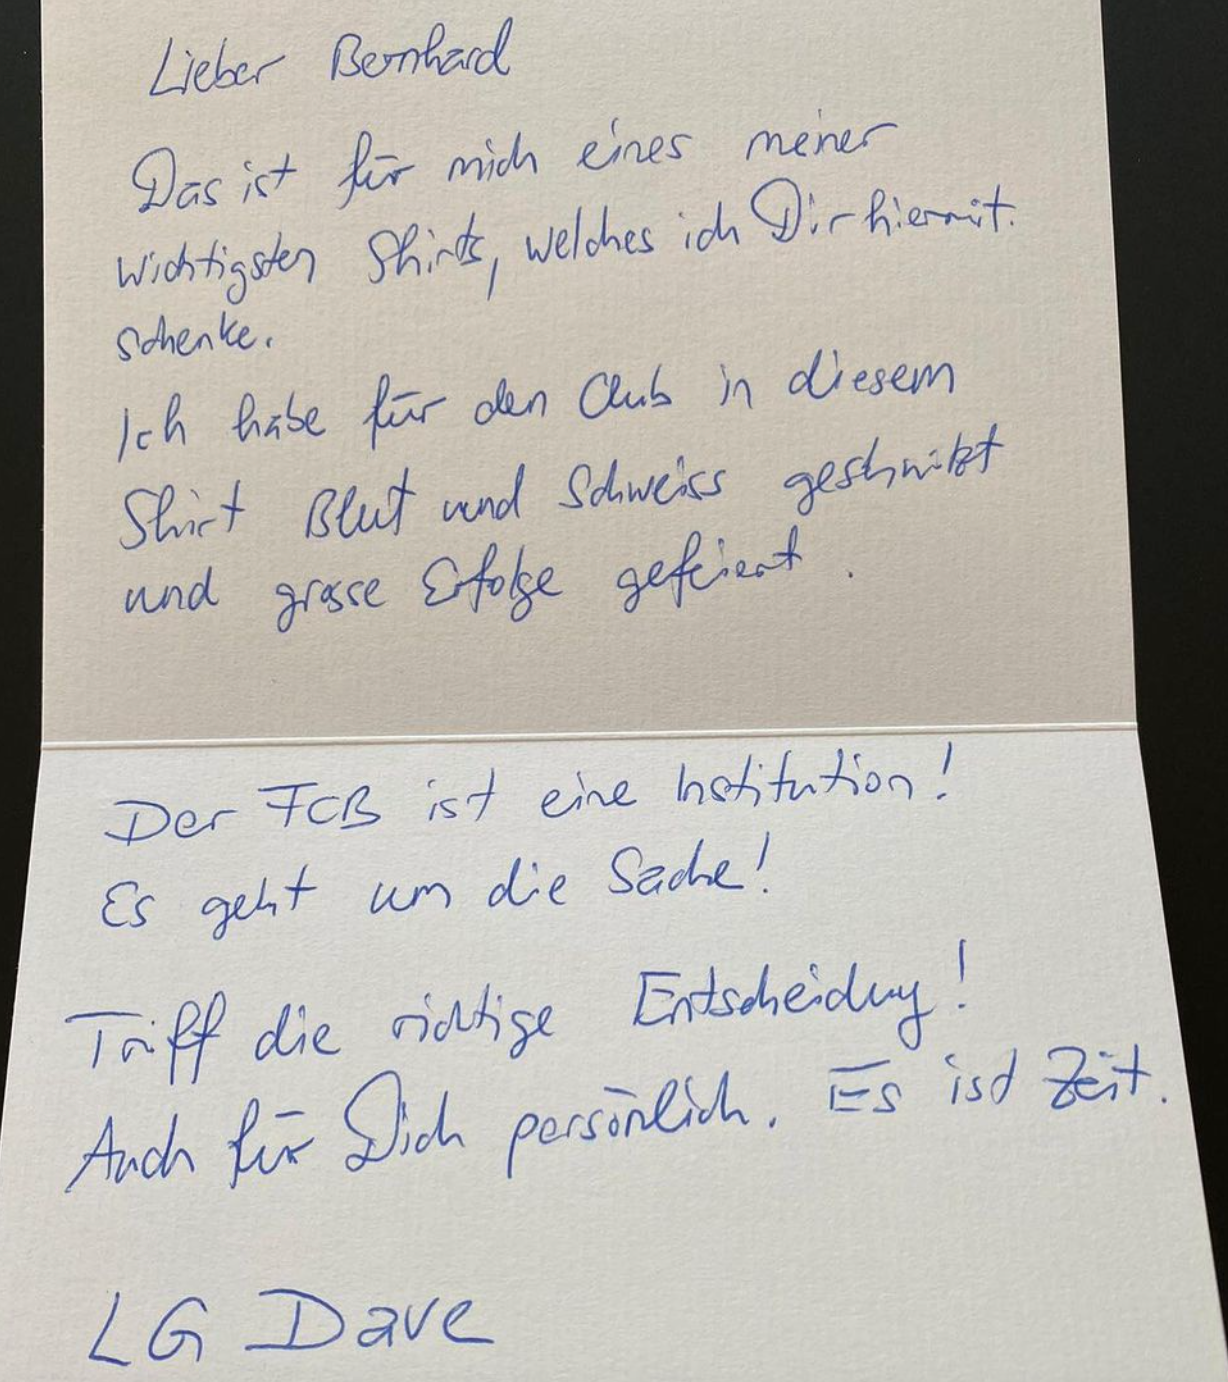 Lieber Bernhard
Das ist für mich eines meiner
wichtigsten Shirts, welches ich Dir hiermit
schenke.
Ich habe für den Club in diesem
Shirt Blut und Schweiss geschwitzt
und grosse Erfolge gefeiert.
Der FCB ist eine Institution!
Es geht um die Sache!
Triff die richtige Entscheidung!
Auch für Dich persönlich. Es ist Zeit.
LG Dave